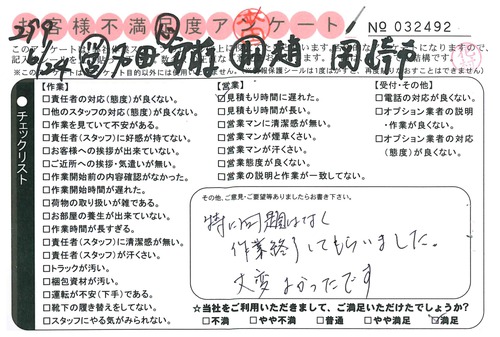 お客様不満足度アンケート
No 032492
【作業】
□責任者の対応(態度)が良くない。
□他のスタッフの対応(態度)が良くない。
□作業を見ていて不安がある。
□責任者(スタッフ)に好感が持てない。
□お客様への挨拶が出来ていない。
□ご近所への挨拶・気遣いが無い。
□作業開始前の内容確認がなかった。
□作業開始時間が遅れた。
□荷物の取り扱いが雑である。
□お部屋の養生が出来ていない。
□作業が長すぎる。
□責任者(スタッフ)に清潔感が無い。
□責任者(スタッフ)が汗くさい。
□トラックが汚い。
□梱包資材が汚い。
□運転が不安(下手)である。
□靴下の履き替えをしてない。
□スタッフにやる気がみられない。
チェックリスト
【営業】
見積もり時間に遅れた。
□見積もり時間が長い。
□営業マンに清潔感が無い。
□営業マンが煙草くさい。
□営業マンが汗くさい。
□営業態度が良くない。
□営業の説明と作業が一致してない。
【受付・その他】
□電話の対応が良くない。
□オプション業者の説明
・作業が良くない。
□オプション業者の対応
(態度)が良くない。
その他、ご意見・ご要望等ありましたらお書き下さい。
特に問題はなく
作業終了してもらいました。
大変よかったです
☆当社をご利用いただきまして、ご満足いただけたでしょうか?
□不満 □やや不満 □普通 □やや満足 ☑満足